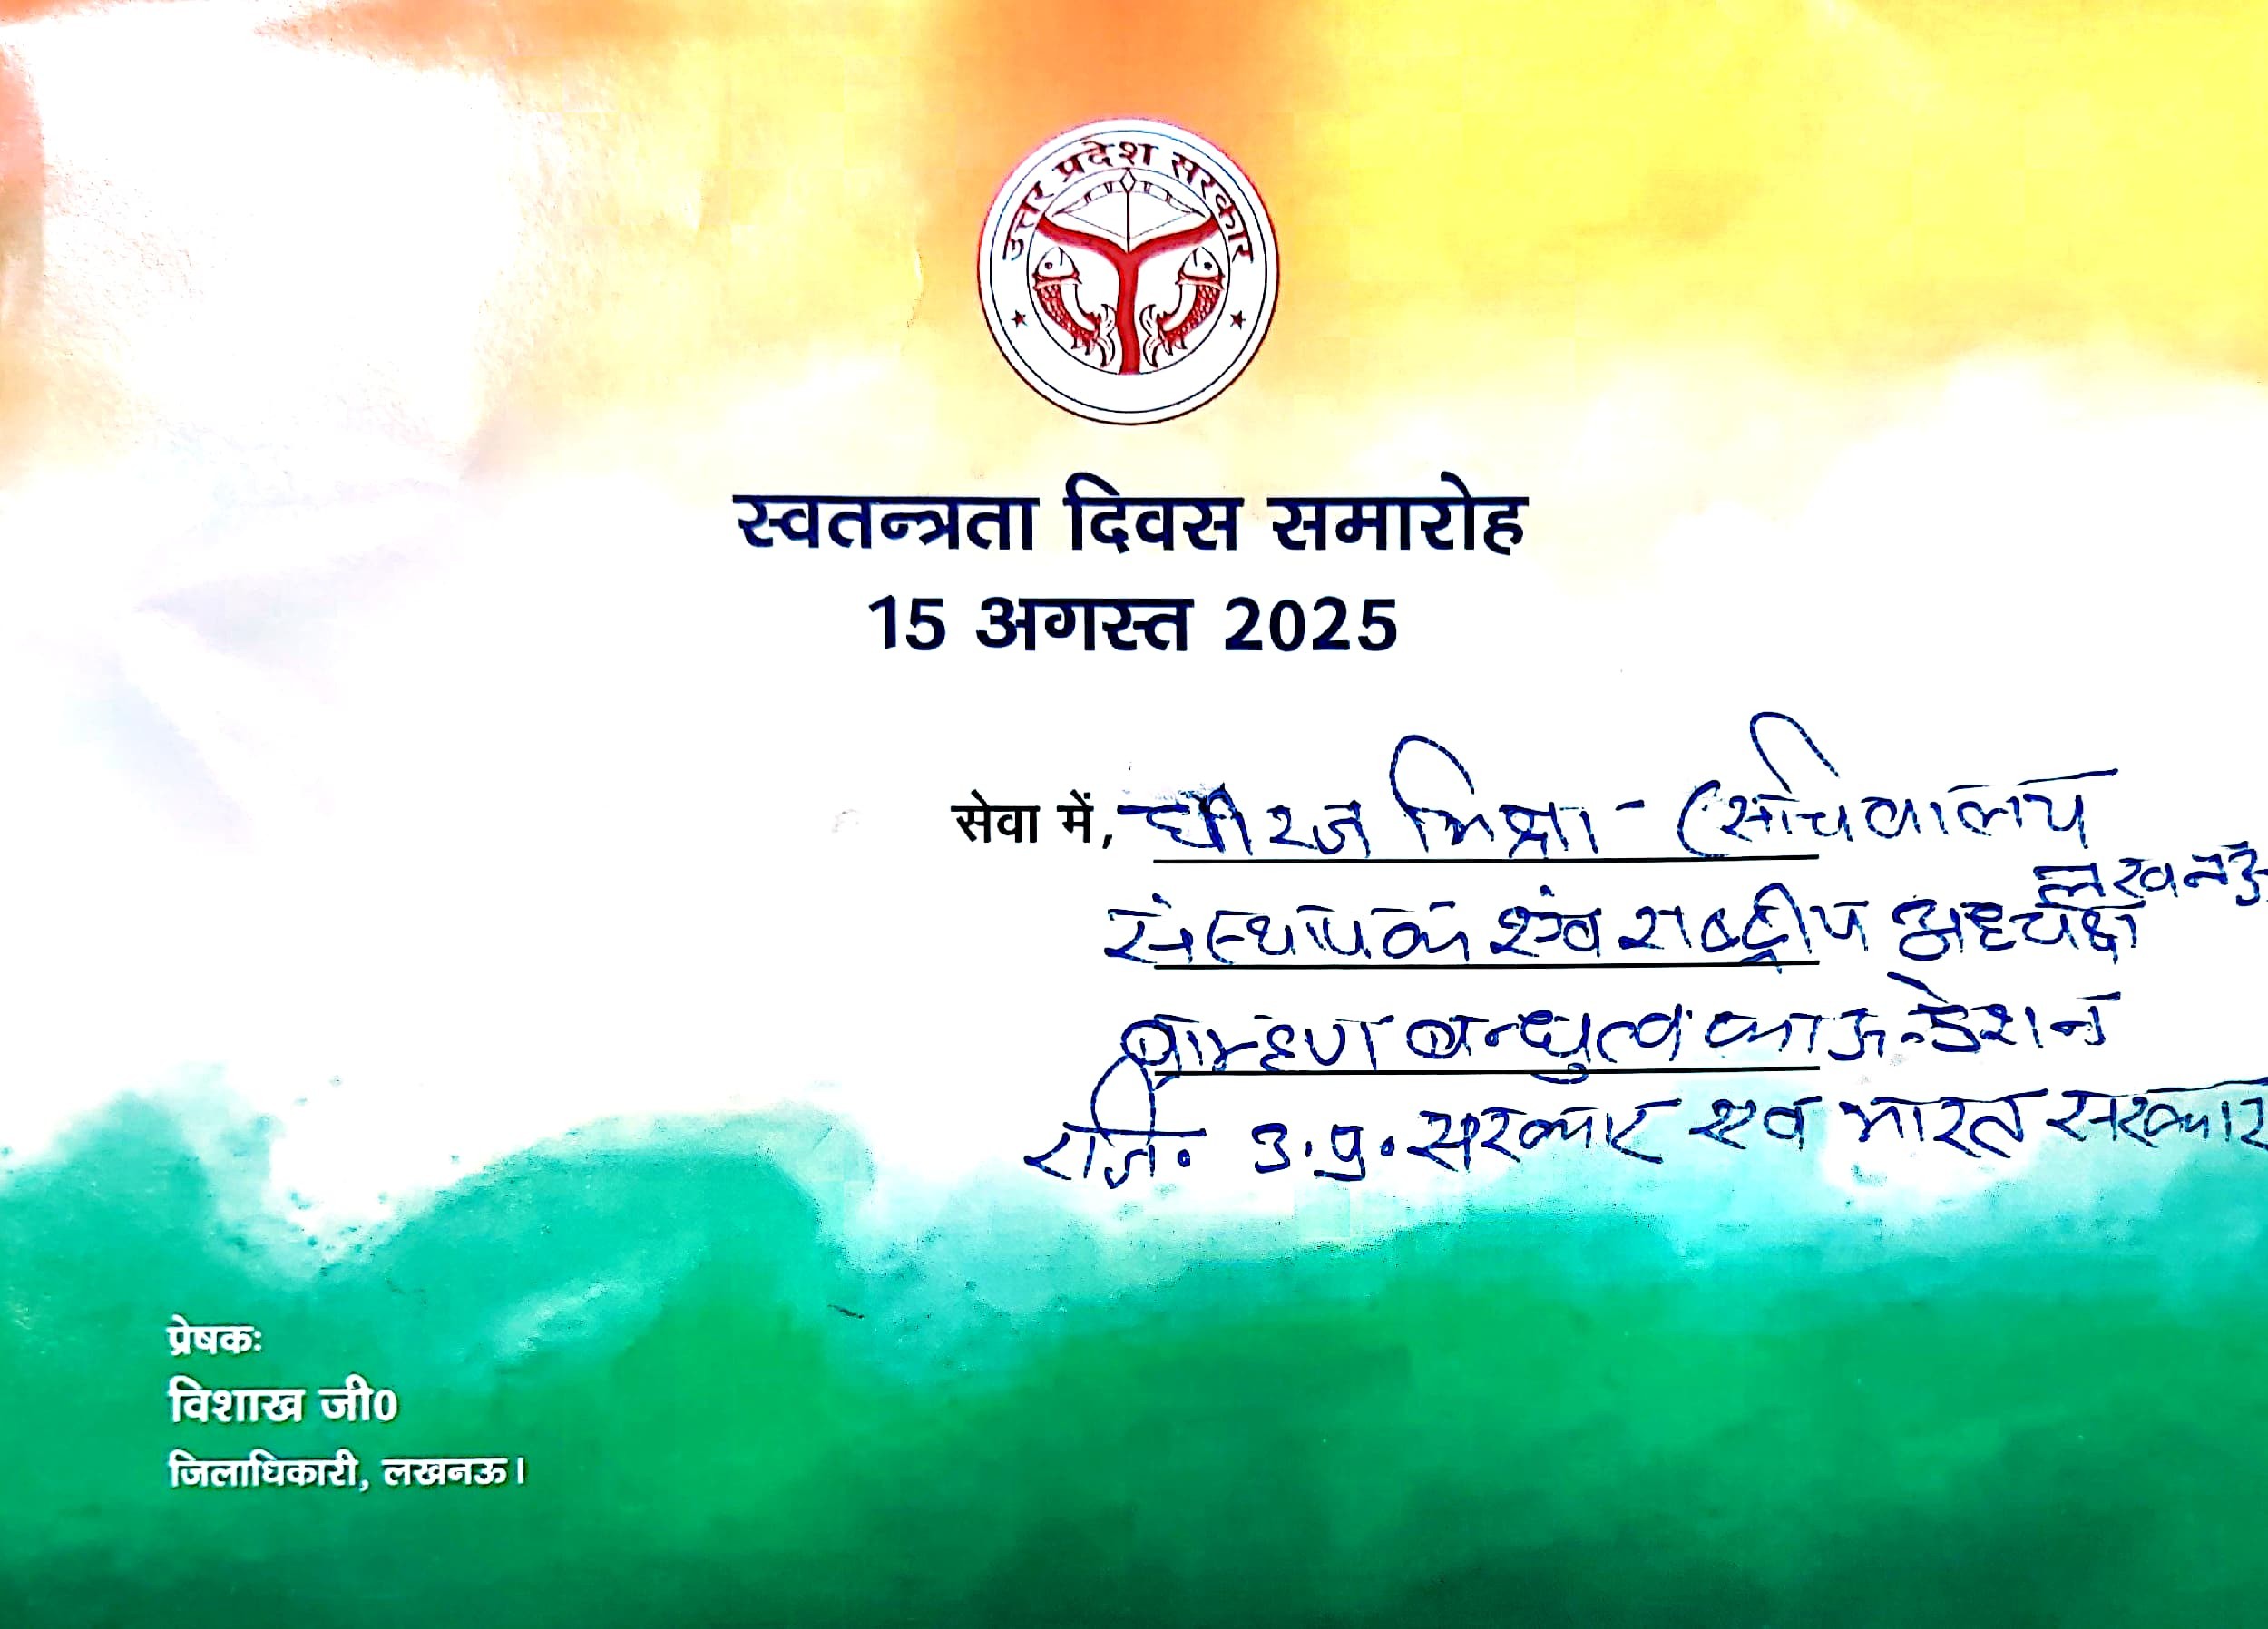 उत्तर प्रदेश सरकार
स्वतन्त्रता दिवस समारोह
15 अगस्त 2025
सेवा में, धीरज मिश्रा - (सचिवालय
लखनऊ
संस्थापक एंव राष्ट्रीय अध्यक्ष
ब्राम्हण बन्धुत्व फाऊन्डेशन
रजि. उ.प्र. सरकार एव भारत सरकार
प्रेषकः
विशाख जी0
जिलाधिकारी, लखनऊ।